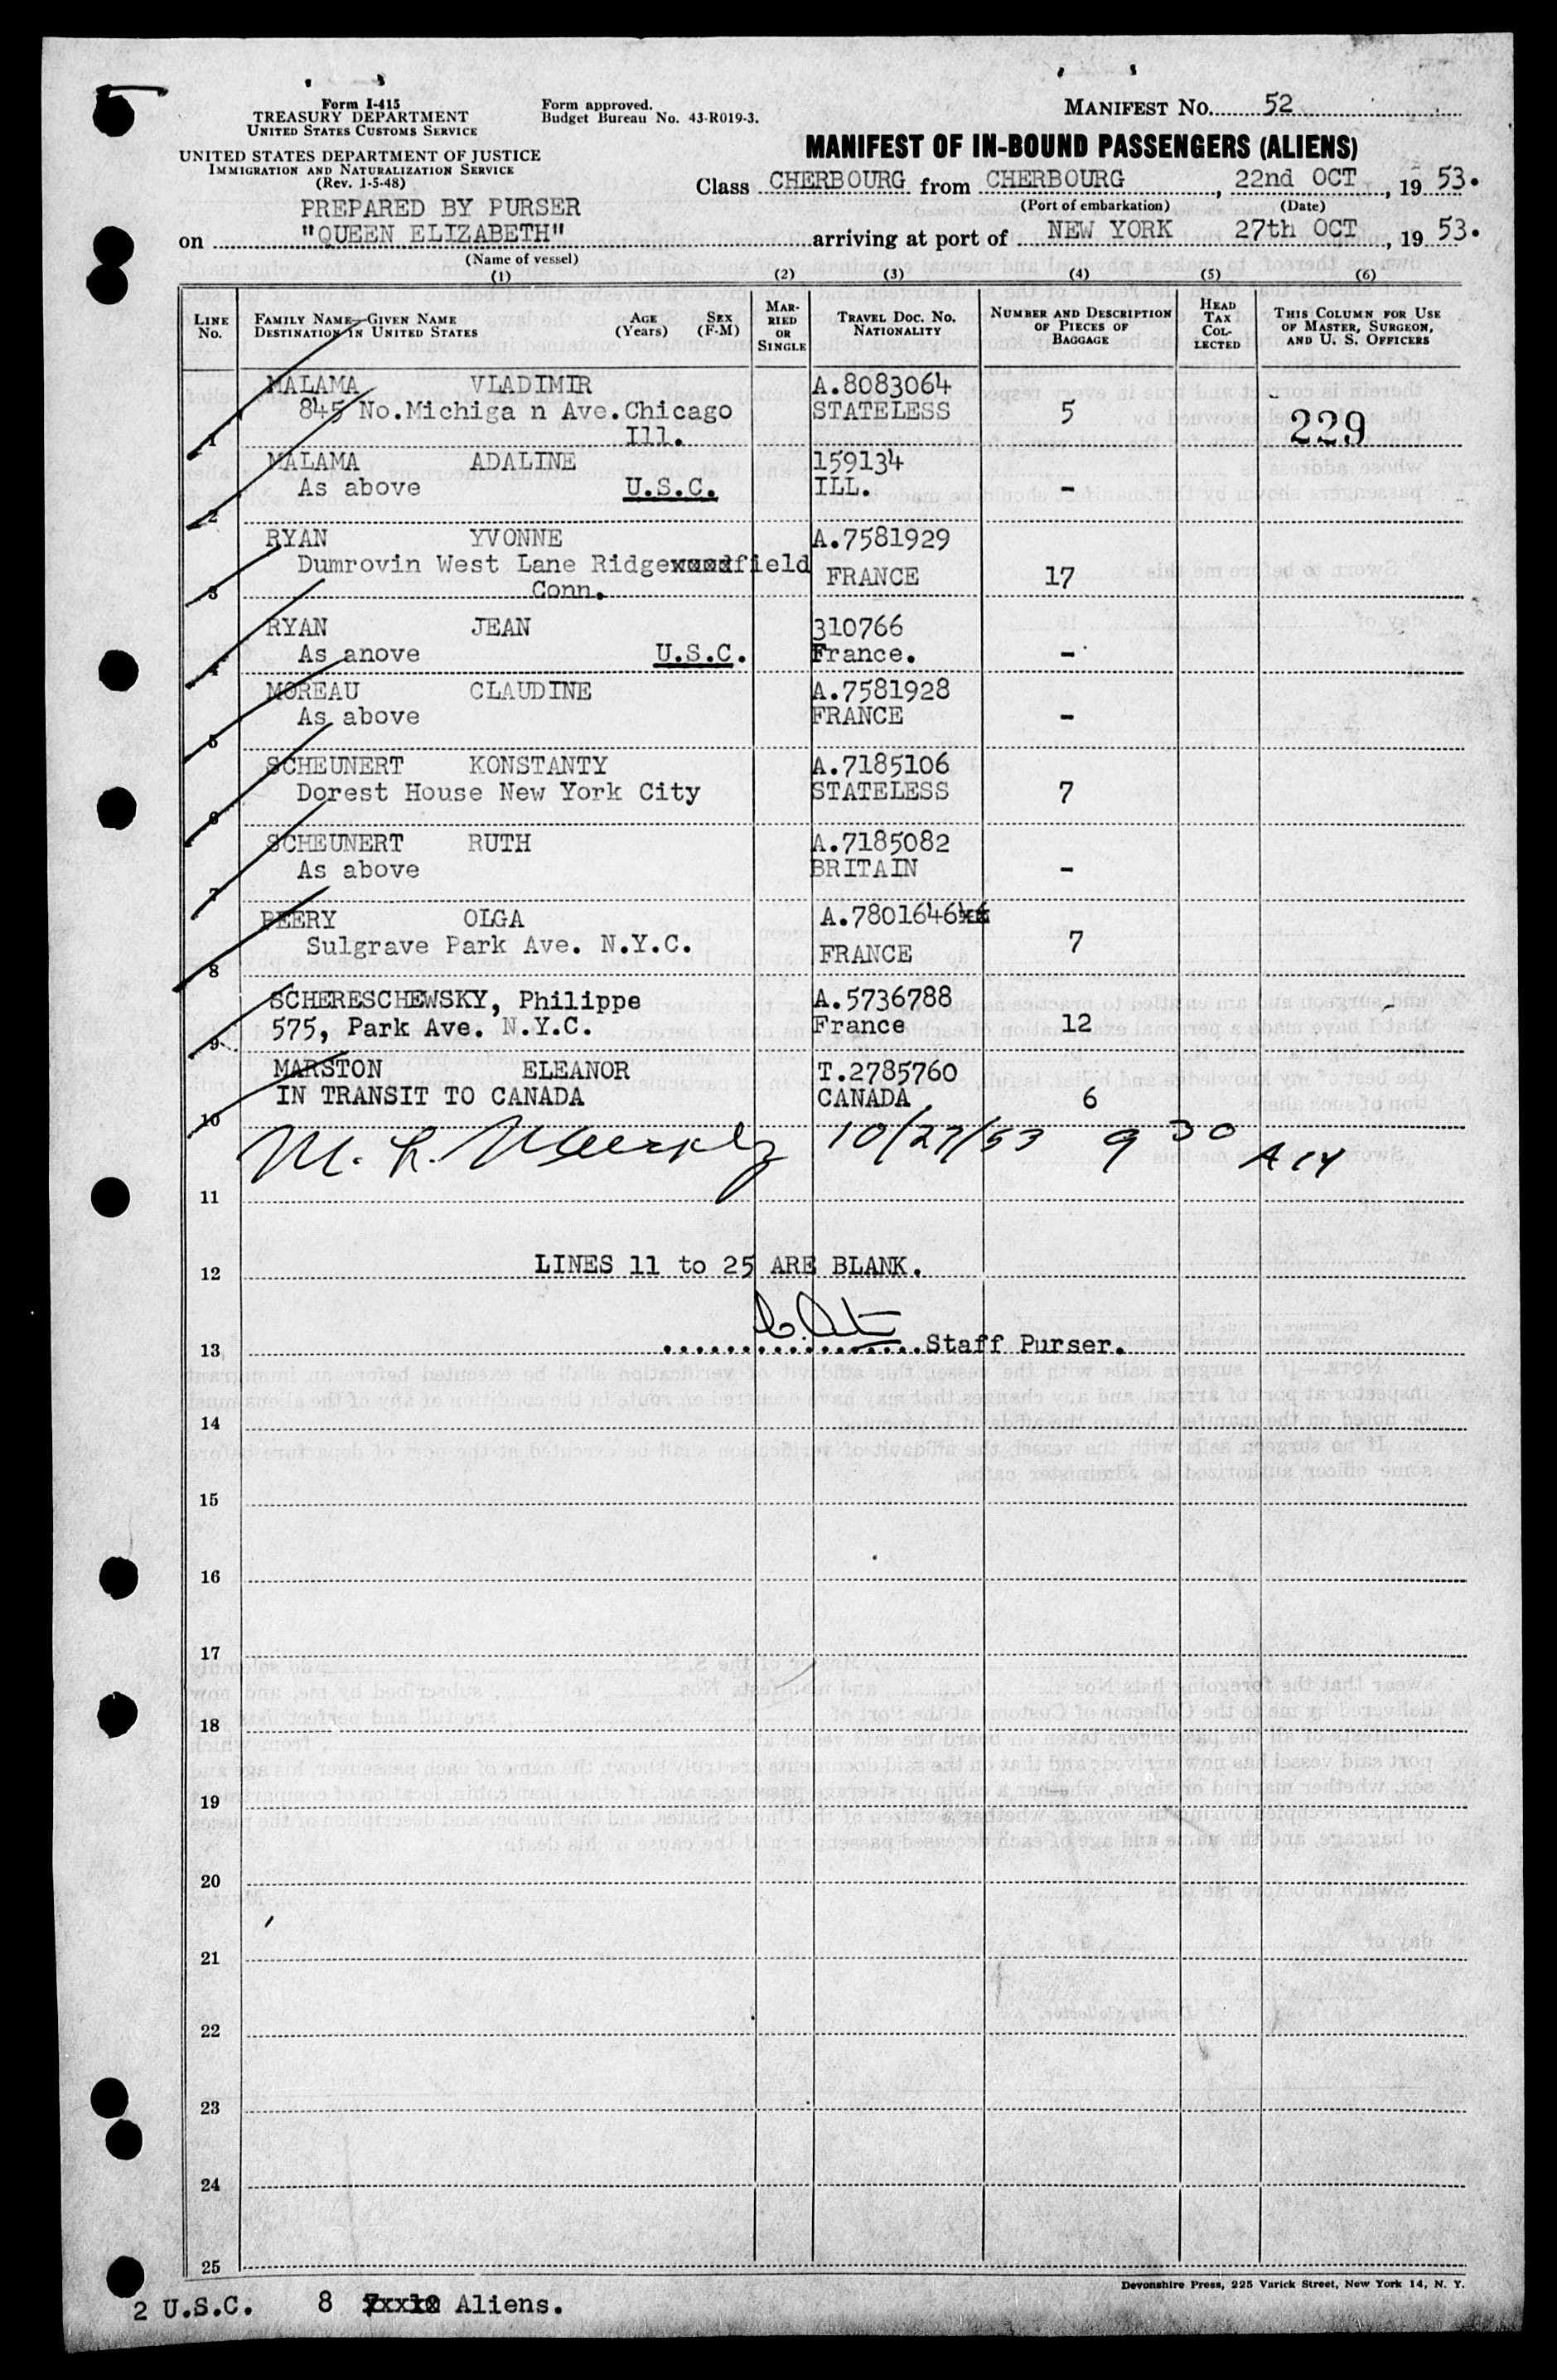 Form I-415
TREASURY DEPARTMENT
UNITED STATES CUSTOMS SERVICE
UNITED STATES DEPARTMENT OF JUSTICE
IMMIGRATION AND NATURALIZATION SERVICE
(Rev. 1-5-48)
Form approved.
Budget Bureau No. 43-R019-3.
MANIFEST NO. 52
MANIFEST OF IN-BOUND PASSENGERS (ALIENS)
Class CHERBOURG from CHERBOURG, 22nd OCT, 19 53.
(Port of embarkation) (Date)
PREPARED BY PURSER
on "QUEEN ELIZABETH" arriving at port of NEW YORK 27th OCT, 19 53.
(Name of vessel)
(1) (2) (3) (4) (5) (6)
LINE NO. FAMILY NAME—GIVEN NAME DESTINATION IN UNITED STATES AGE (Years) SEX (F-M) MARRIED OR SINGLE TRAVEL DOC. NO. NATIONALITY NUMBER AND DESCRIPTION OF PIECES OF BAGGAGE HEAD TAX COLLECTED THIS COLUMN FOR USE OF MASTER, SURGEON, AND U. S. OFFICERS
MALAMA VLADIMIR A.8083064
845 No.Michiga n Ave.Chicago STATELESS 5 229
1 Ill.
MALAMA ADALINE 159134
As above U.S.C. ILL. -
2
RYAN YVONNE A.7581929
Dumrovin West Lane Ridgefield FRANCE 17
3 Conn.
RYAN JEAN 310766
As anove U.S.C. France. -
4
MOREAU CLAUDINE A.7581928
As above FRANCE -
5
SCHEUNERT KONSTANTY A.7185106
Dorest House New York City STATELESS 7
6
SCHEUNERT RUTH A.7185082
As above BRITAIN -
7
BEERY OLGA A.7801646
Sulgrave Park Ave. N.Y.C. FRANCE 7
8
SCHERESCHEWSKY, Philippe A.5736788
575, Park Ave. N.Y.C. France 12
9
MARSTON ELEANOR T.2785760
IN TRANSIT TO CANADA CANADA 6
10
M. L. 10/27/53 9 30 AM
11
12 LINES 11 to 25 ARE BLANK.
13 Staff Purser.
14
15
16
17
18
19
20
21
22
23
24
25
Devonshire Press, 225 Varick Street, New York 14, N. Y.
2 U.S.C. 8 Aliens.